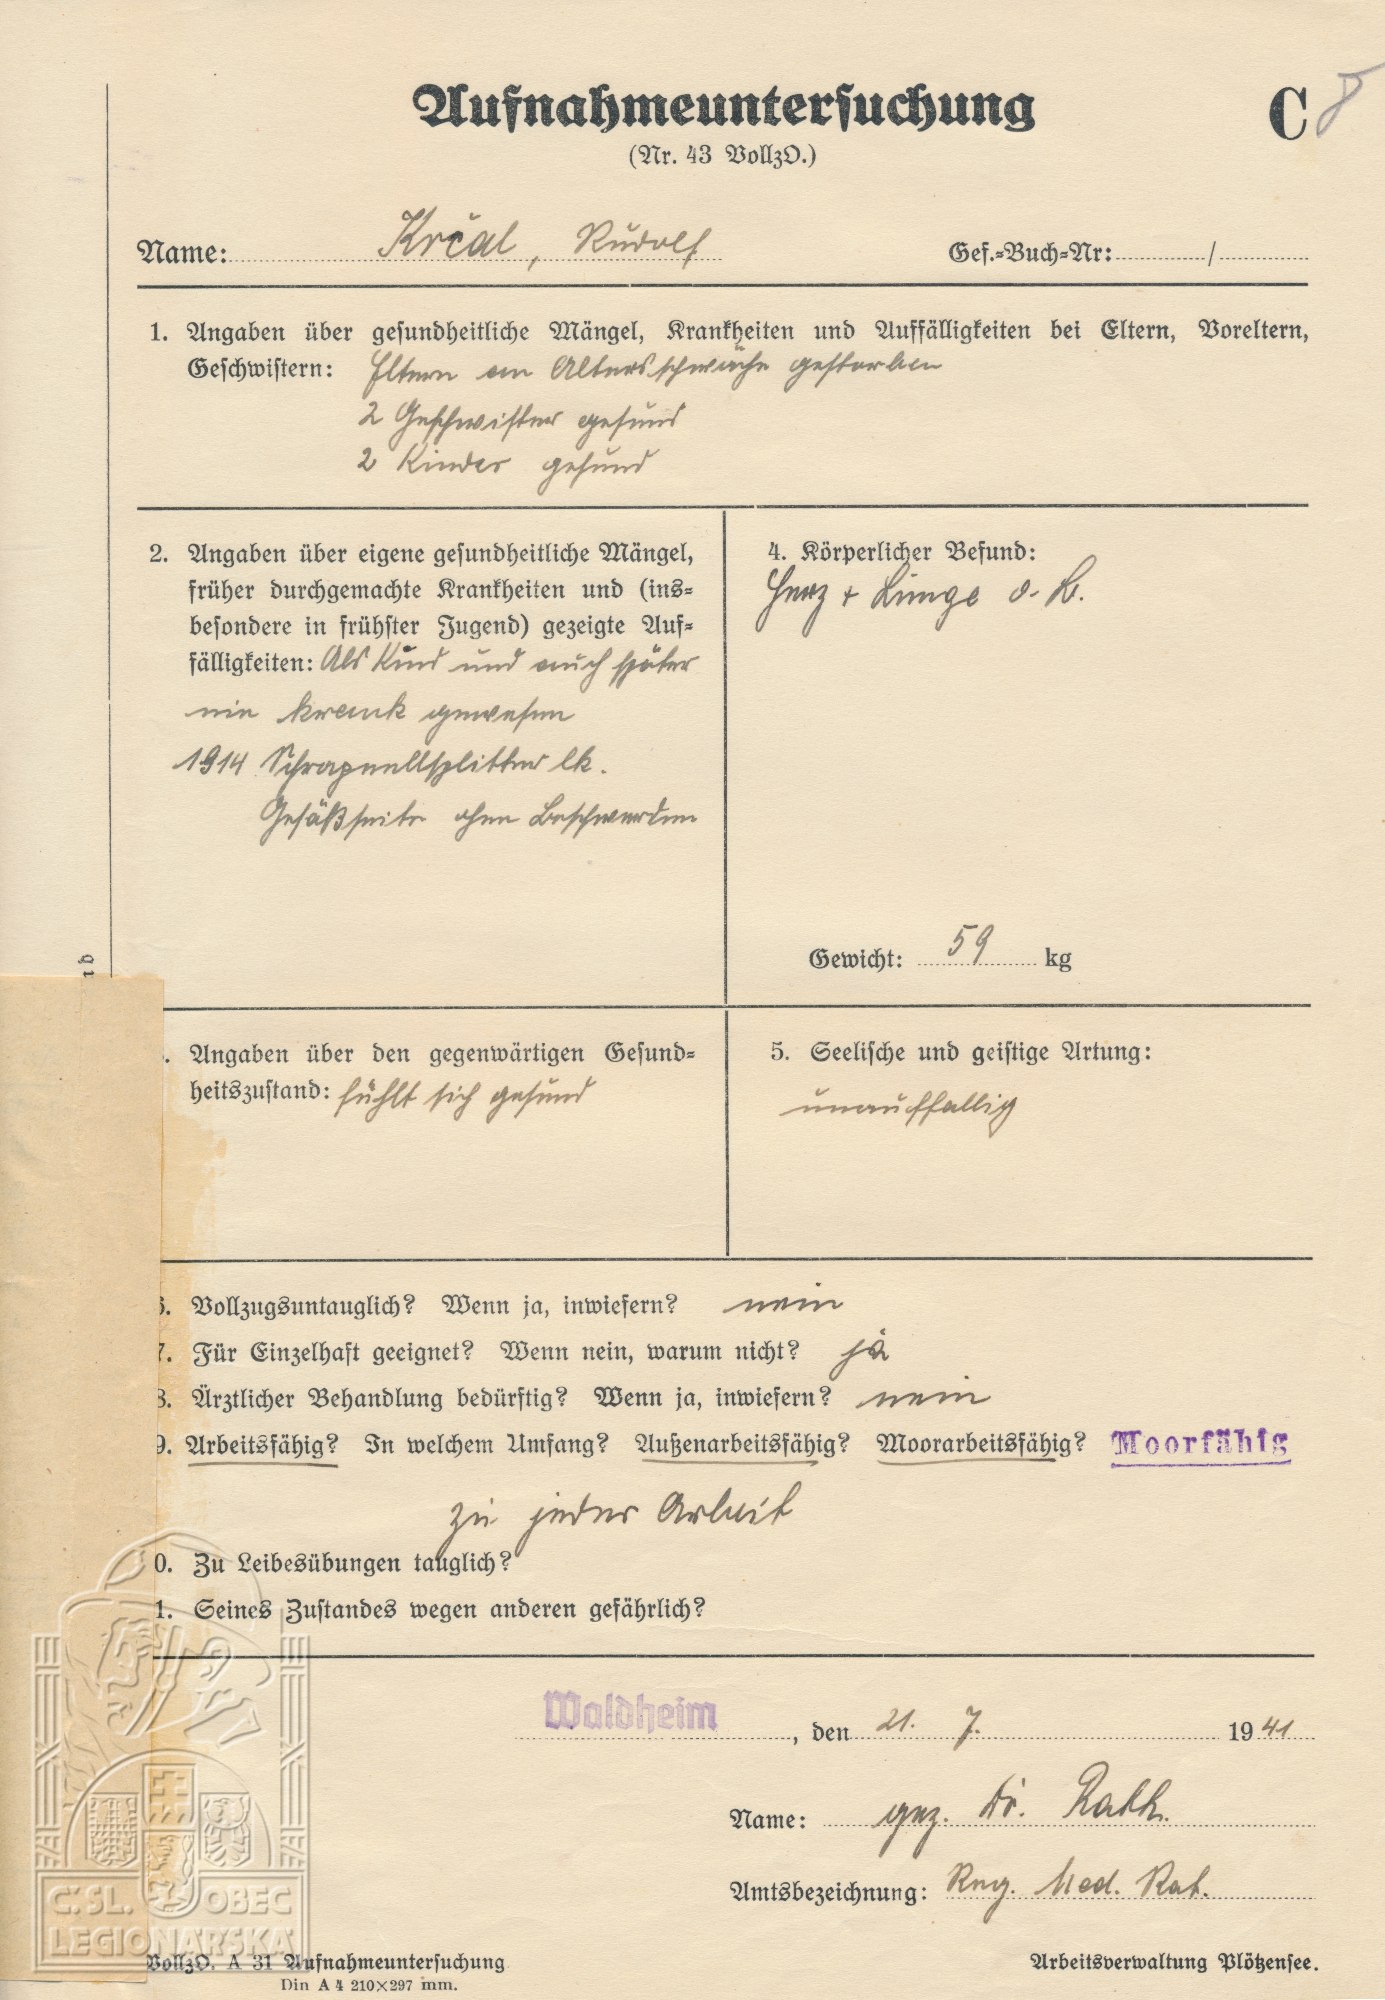 Aufnahmeuntersuchung
C 8
(Nr. 43 VollzO.)
Name: Krčal, Rudolf Gef.=Buch=Nr: /
1. Angaben über gesundheitliche Mängel, Krankheiten und Auffälligkeiten bei Eltern, Voreltern,
Geschwistern: Eltern an Altersschwäche gestorben
2 Geschwister gesund
2 Kinder gesund
2. Angaben über eigene gesundheitliche Mängel,
früher durchgemachte Krankheiten und (ins=
besondere in frühster Jugend) gezeigte Auf=
fälligkeiten: Als Kind und auch später
nie krank gewesen
1914 Schrapnellsplitter lk.
Gesäßseite ohne Beschwerden
4. Körperlicher Befund:
Herz + Lunge o. B.
Gewicht: 59 kg
. Angaben über den gegenwärtigen Gesund=
heitszustand: fühlt sich gesund
5. Seelische und geistige Artung:
unauffällig
6. Vollzugsuntauglich? Wenn ja, inwiefern? nein
7. Für Einzelhaft geeignet? Wenn nein, warum nicht? ja
8. Ärztlicher Behandlung bedürftig? Wenn ja, inwiefern? nein
9. Arbeitsfähig? In welchem Umfang? Außenarbeitsfähig? Moorarbeitsfähig? Moorfähig
zu jeder Arbeit
0. Zu Leibesübungen tauglich?
1. Seines Zustandes wegen anderen gefährlich?
Waldheim, den 21. 7. 1941
Name: gez. Dr. Rath.
Amtsbezeichnung: Reg. Med. Rat.
Č.SL. OBEC
LEGIONÁŘSKÁ
VollzO. A 31 Aufnahmeuntersuchung
Din A 4 210×297 mm.
Arbeitsverwaltung Plötzensee.